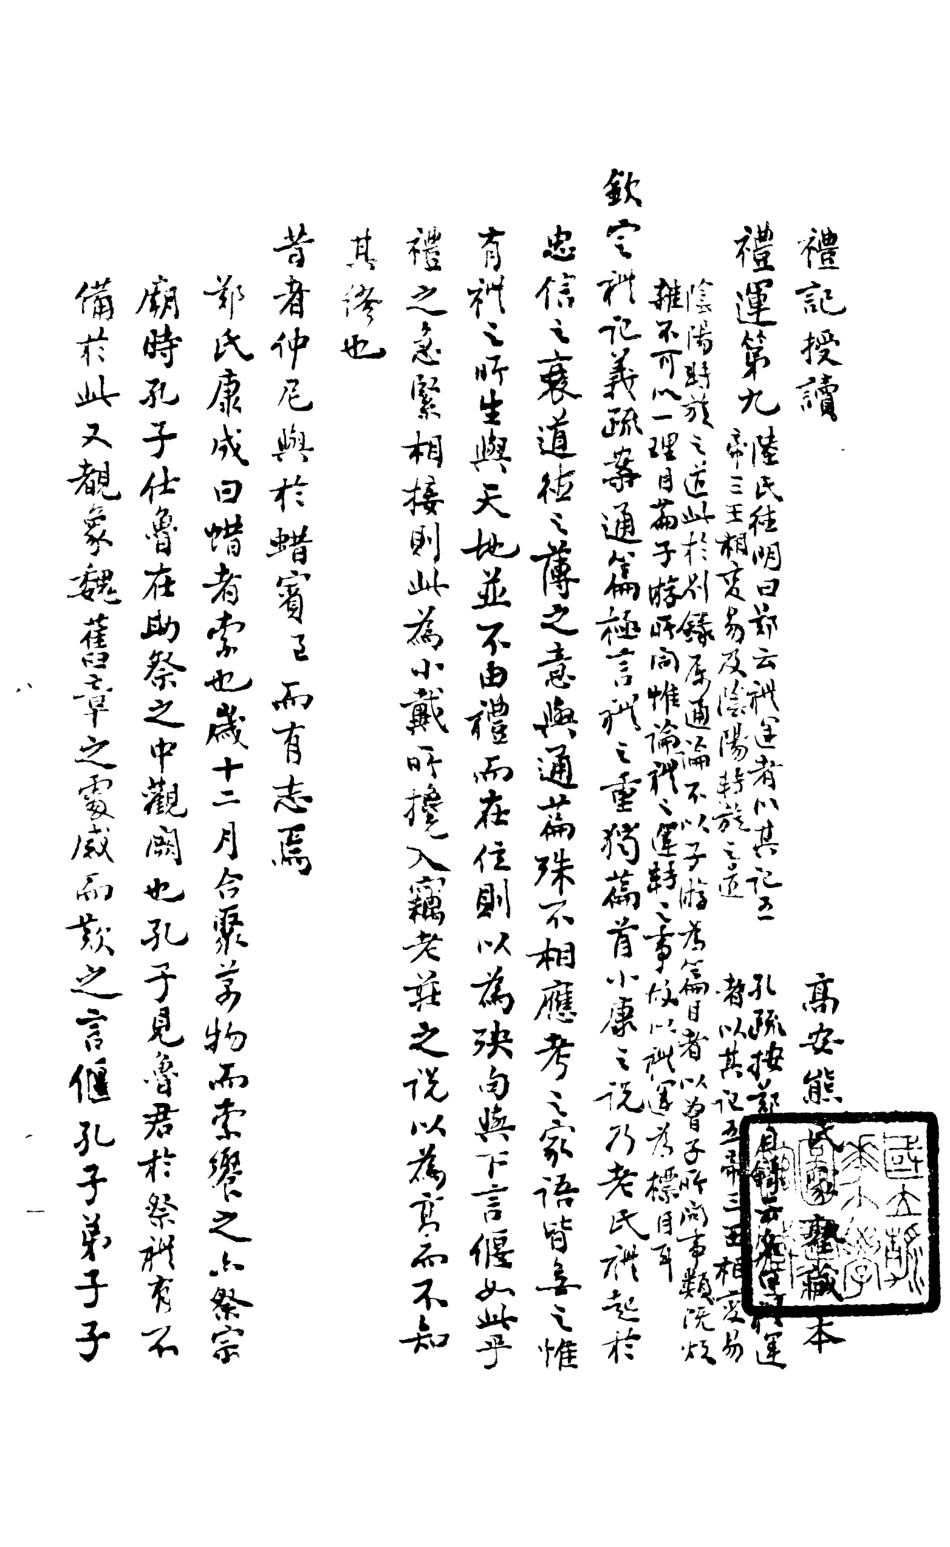 禮記授讀　高安熊氏家塾藏本
禮運第九　陸氏德明曰鄭云禮運者以其記五
帝三王相變易及陰陽轉旋之道
孔疏按鄭目錄云名曰禮運
者以其記五帝三王相變易
陰陽轉旋之道此於別錄屬通論不以子游為篇目者以曾子所問事類既煩
雜不可以一理目篇子游所問惟論禮之運轉之事故以禮運為標目耳
欽定禮記義疏案通篇極言禮之重獨篇首小康之說乃老氏禮起於
忠信之衰道德之薄之意與通篇殊不相應考之家語皆無之惟
有禮之所生與天地並不由禮而在位則以為殃句與下言偃如此乎
禮之急緊相接則此為小戴所攙入竊老莊之說以為高而不知
其謬也
昔者仲尼與於蜡賓王而有志焉
鄭氏康成曰蜡者索也歲十二月合聚萬物而索饗之亦祭宗
廟時孔子仕魯在助祭之中觀闕也孔子見魯君於祭禮有不
備於此又覩象魏舊章之處感而歎之言偃孔子弟子子
國立
大學
八
一